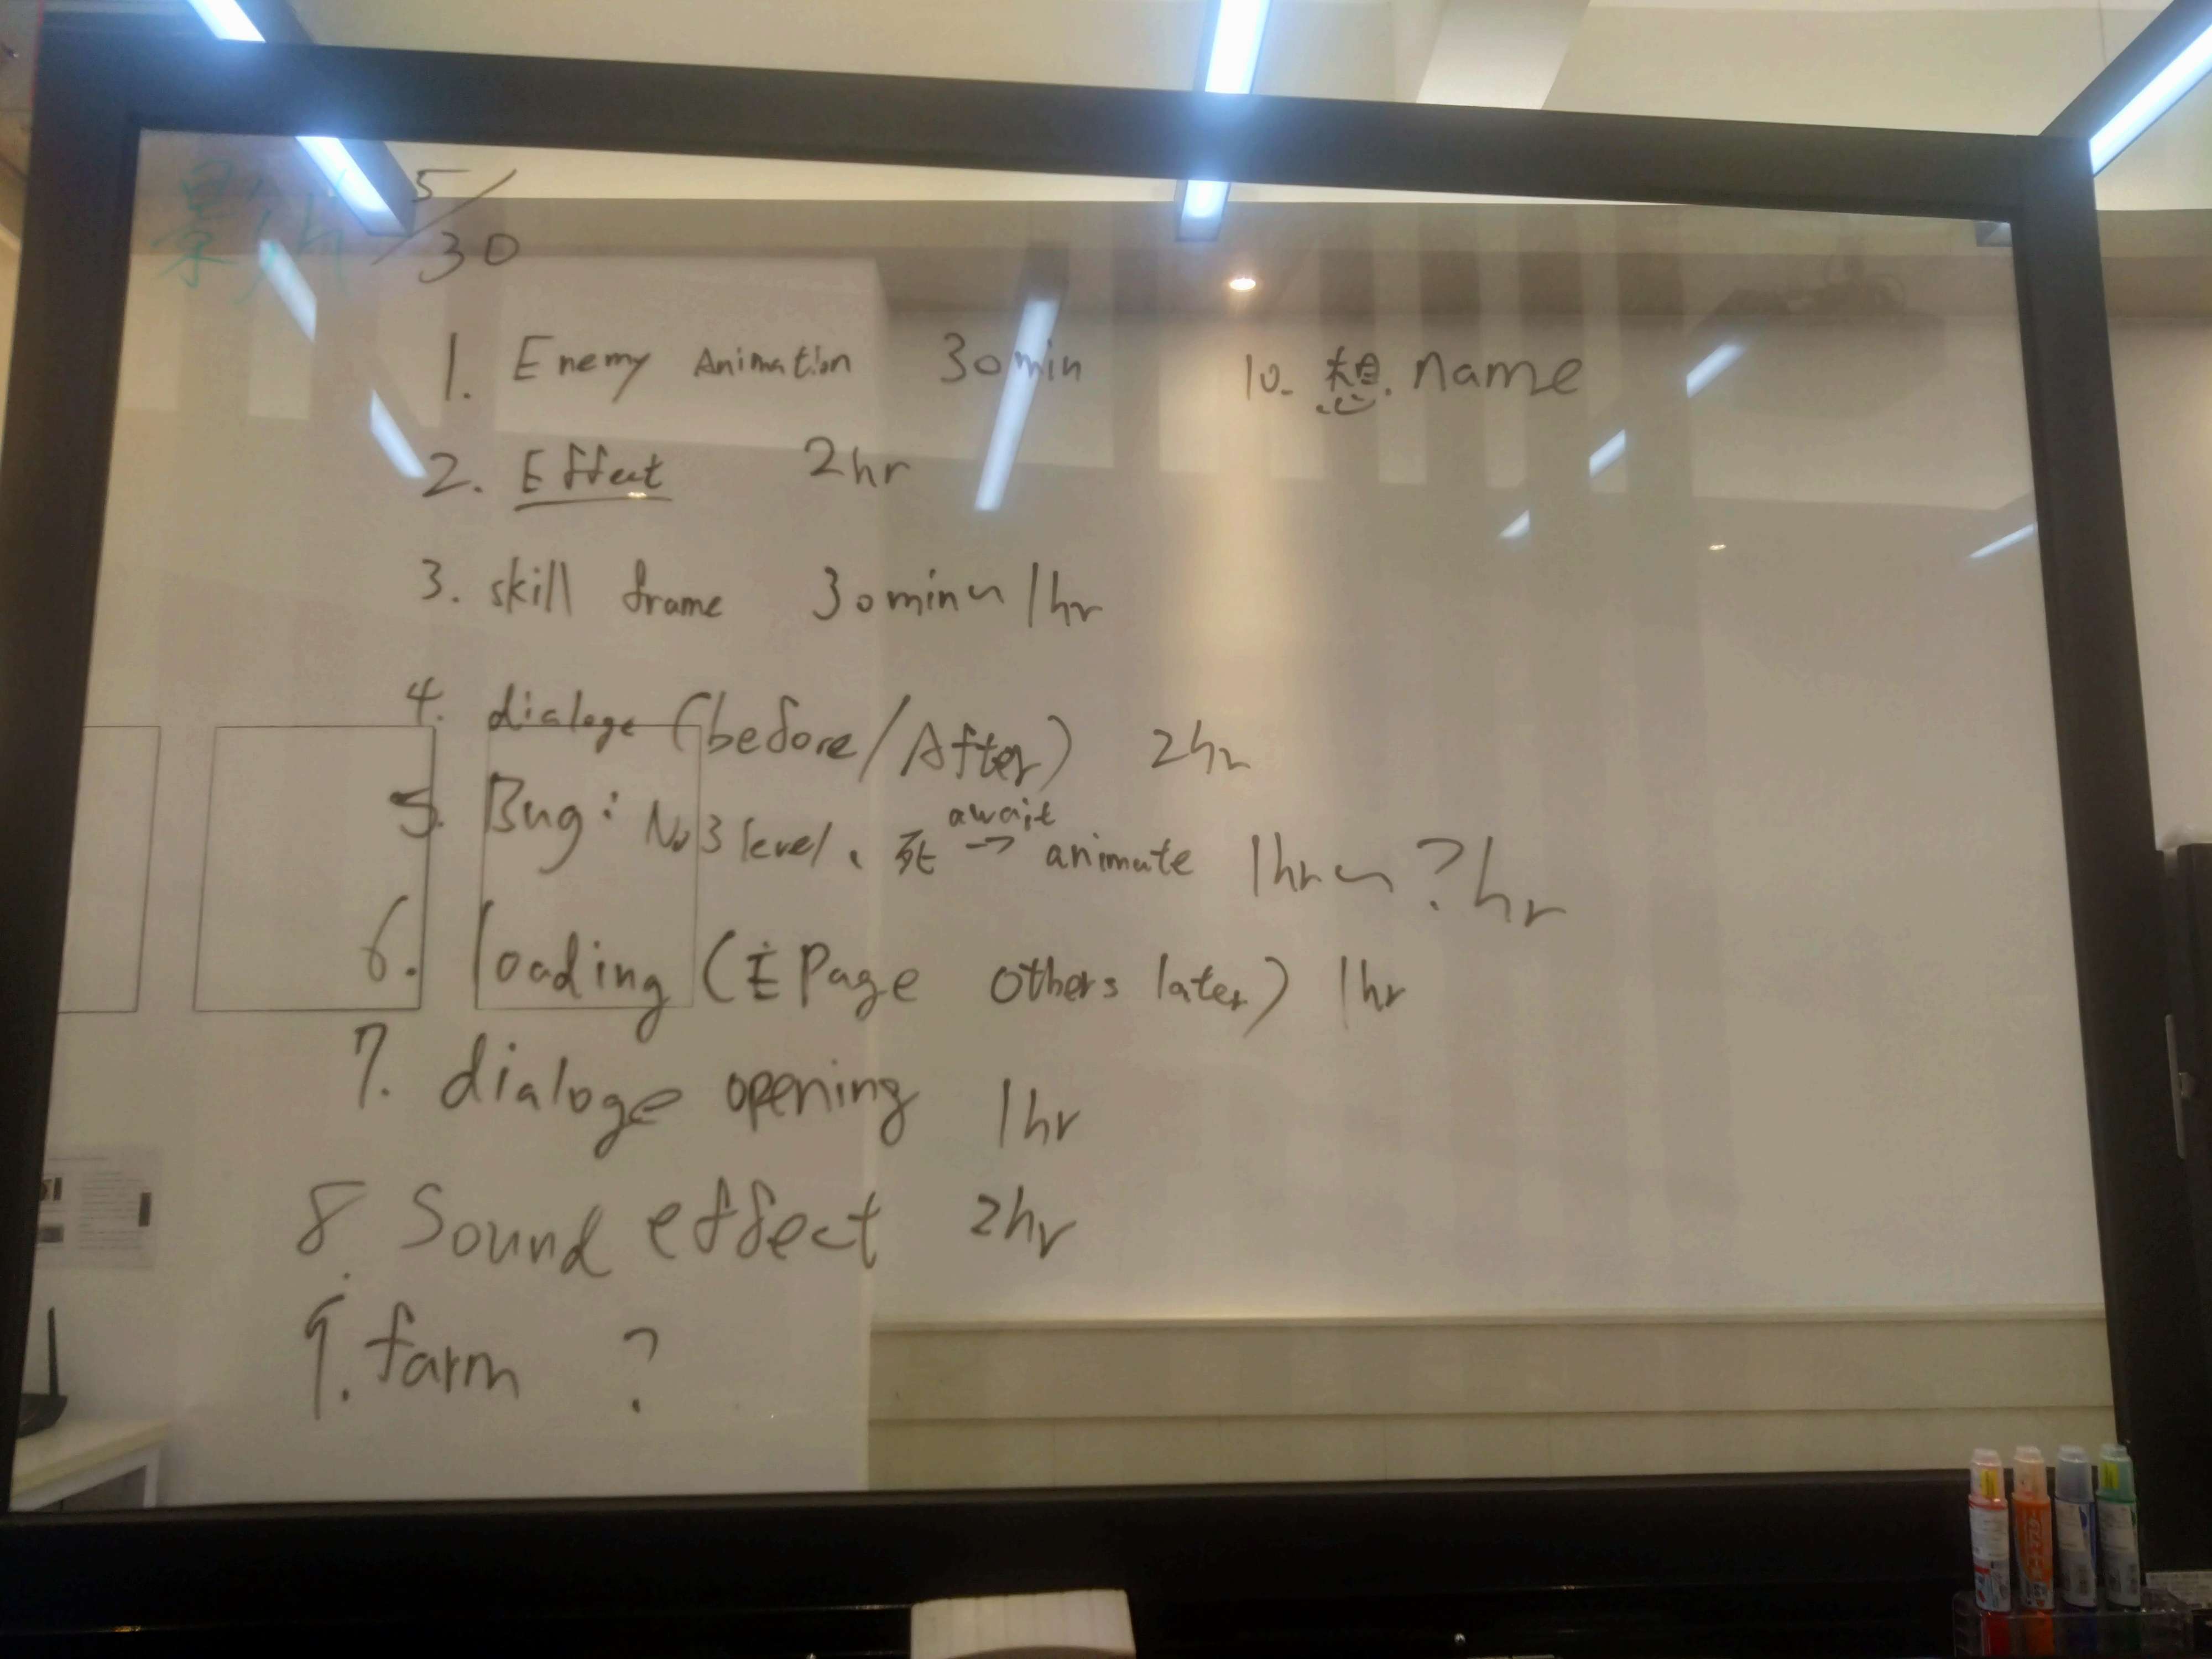 5/30
1. Enemy Animation 30min
2. Effect 2hr
3. skill frame 30min~1hr
4. dialoge (before/After) 2hr
5. Bug: No3 level、死 → animate 1hr~?hr
await
6. loading (主Page others later) 1hr
7. dialoge opening 1hr
8. Sound effect 2hr
9. farm ?
10. 想 name